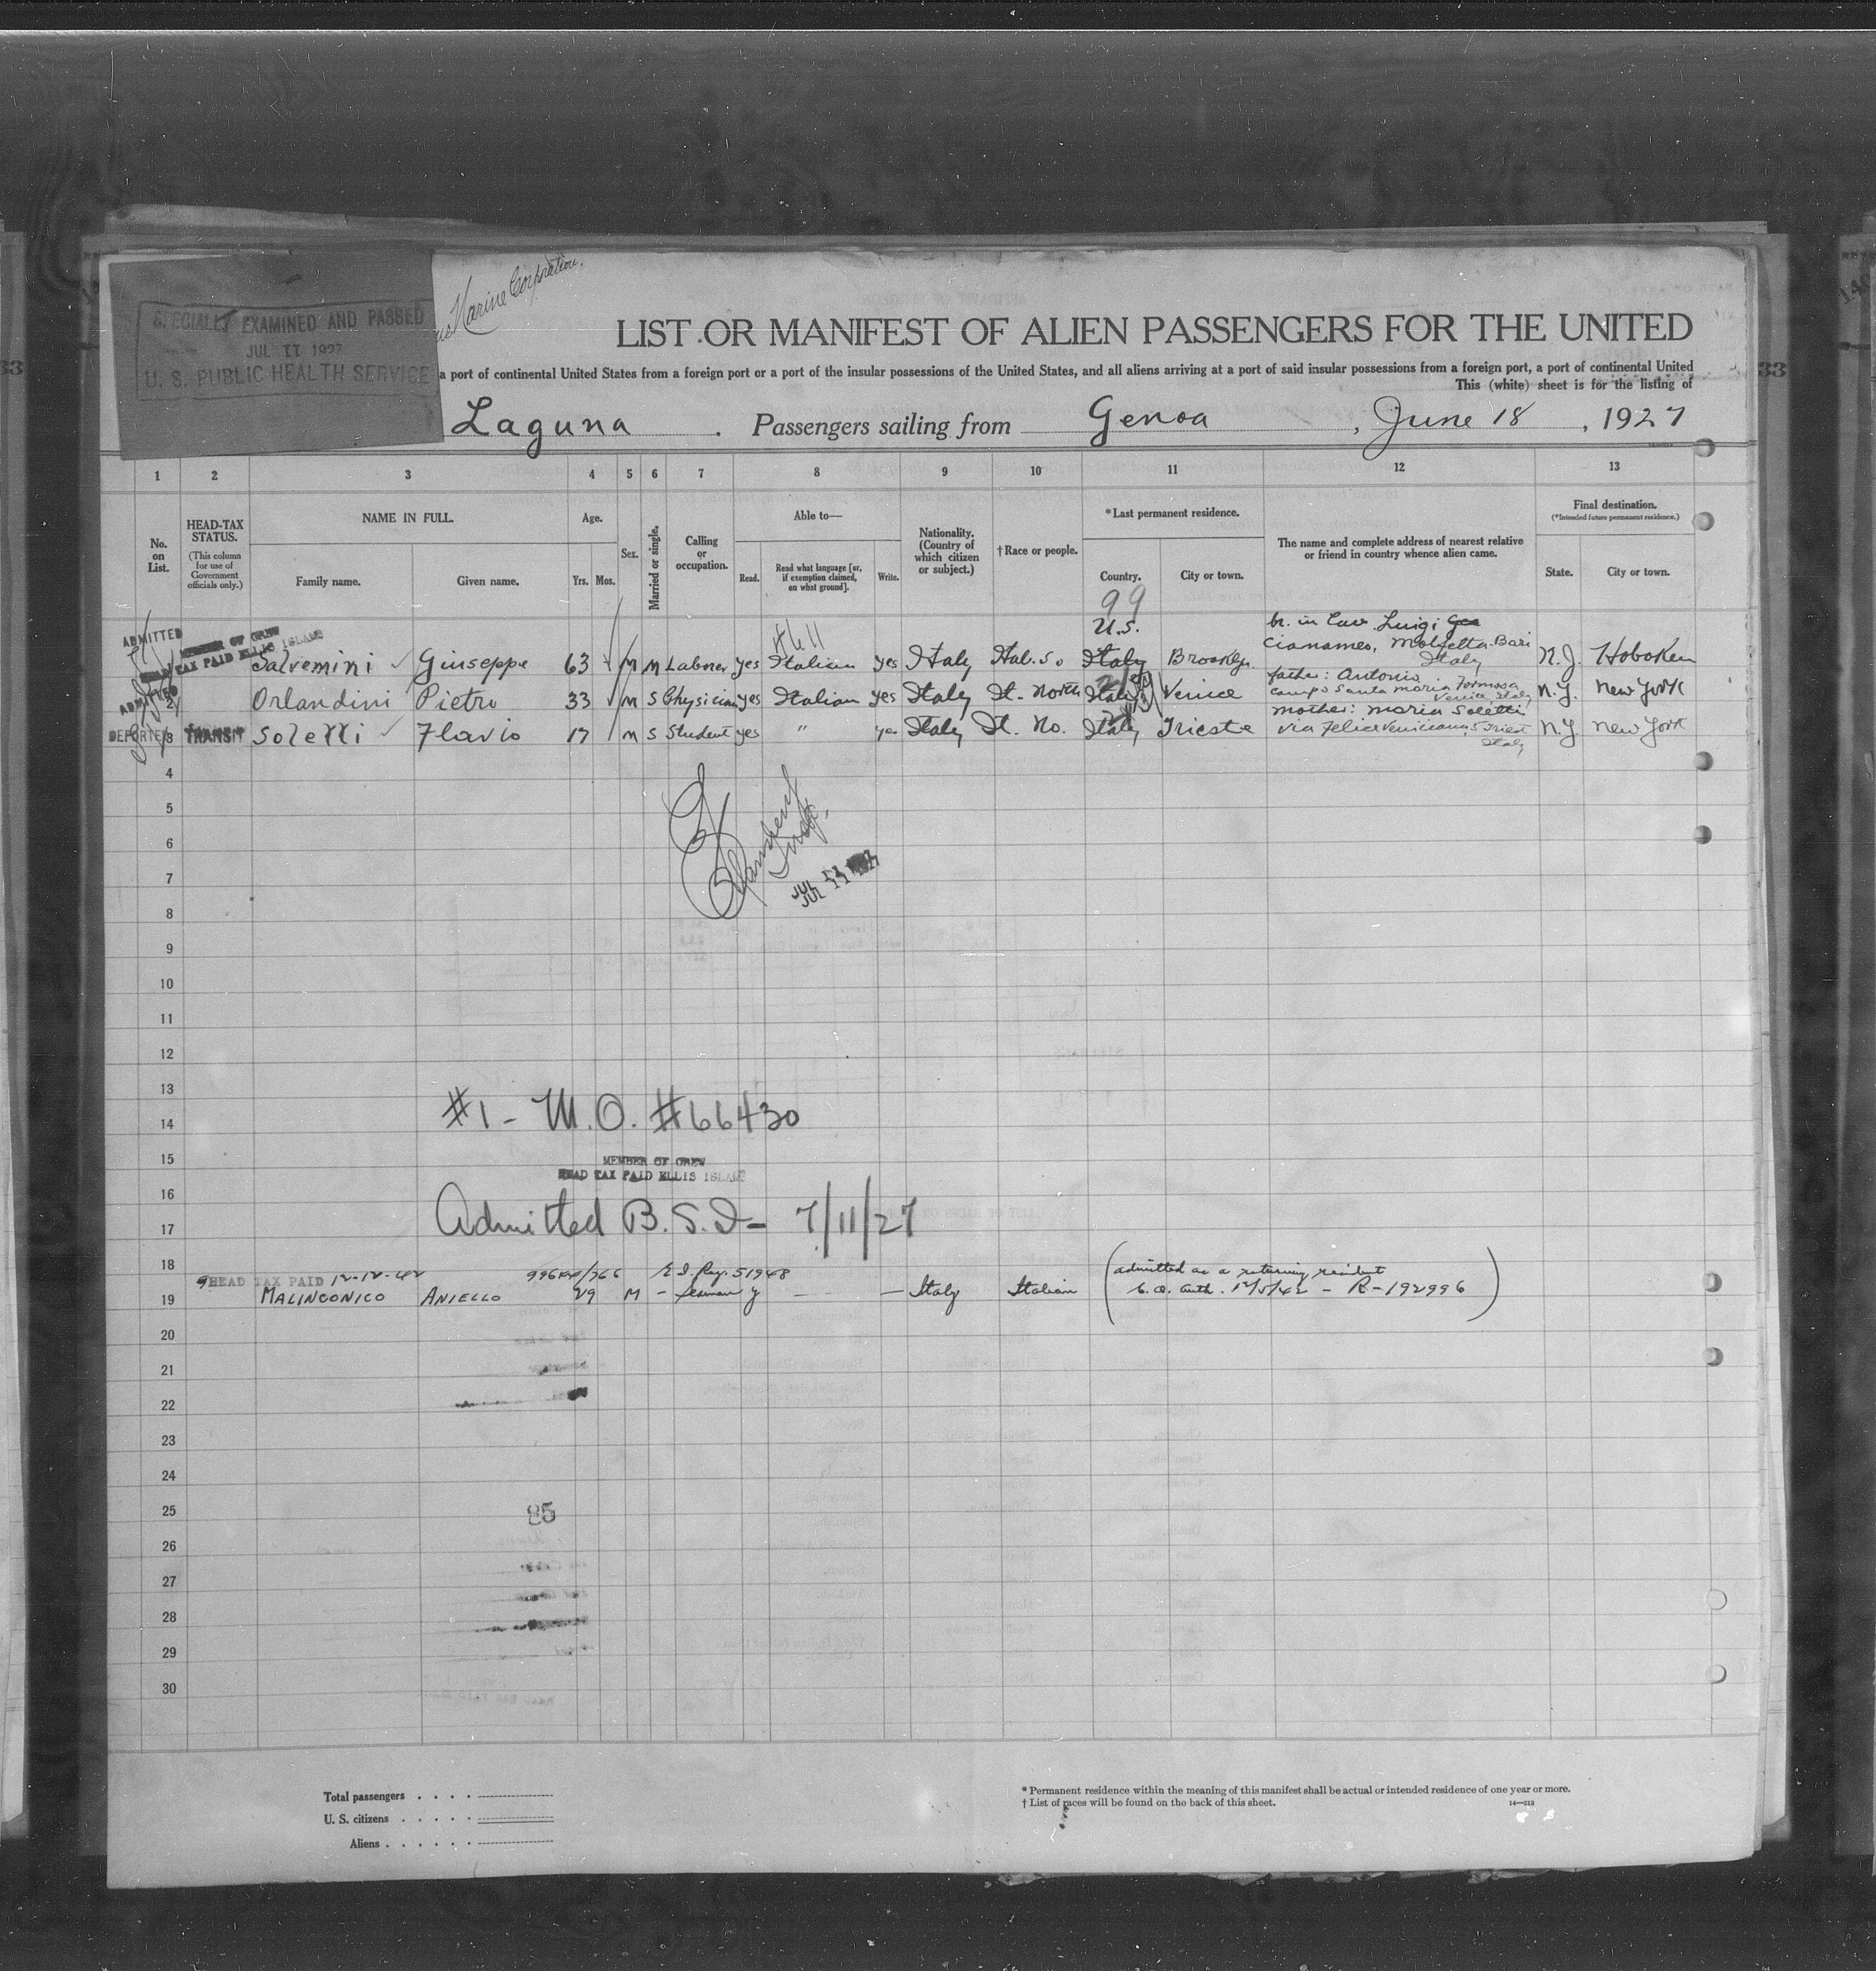 Marine Corporation.
SPECIALLY EXAMINED AND PASSED
JUL 11 1927
U. S. PUBLIC HEALTH SERVICE
LIST OR MANIFEST OF ALIEN PASSENGERS FOR THE UNITED
a port of continental United States from a foreign port or a port of the insular possessions of the United States, and all aliens arriving at a port of said insular possessions from a foreign port, a port of continental United
This (white) sheet is for the listing of
Laguna . Passengers sailing from Genoa , June 18 , 1927
1 2 3 4 5 6 7 8 9 10 11 12 13
No. on List.
HEAD-TAX STATUS.
(This column for use of Government officials only.)
NAME IN FULL.
Family name. Given name.
Age.
Yrs. Mos.
Sex.
Married or single.
Calling or occupation.
Able to—
Read. Read what language [or, if exemption claimed, on what ground]. Write.
Nationality. (Country of which citizen or subject.)
† Race or people.
*Last permanent residence.
Country. City or town.
The name and complete address of nearest relative or friend in country whence alien came.
Final destination.
(*Intended future permanent residence.)
State. City or town.
99
U.S.
ADMITTED MEMBER OF CREW
HEAD TAX PAID ELLIS ISLAND
Salvemini Giuseppe 63 M M Laborer yes Italian yes Italy Ital. So Italy Brooklyn br. in law Luigi
Molfetta-Bari Italy N.J. Hoboken
ADMITTED 2 Orlandini Pietro 33 M S Physician yes Italian yes Italy It. North Italy Venice father: Antonio
Campo Santa Maria Formosa Venice Italy N.Y. New York
DEPORTED 3 TRANSIT Soletti Flavio 17 M S Student yes " yes Italy It. No. Italy Trieste mother: Maria Soletti
via Felice 5 Triest Italy N.Y. New York
4
5
6
7
JUL 11 1927
8
9
10
11
12
13
#1- M.O. #66430
14
15
MEMBER OF CREW
HEAD TAX PAID ELLIS ISLAND
16
Admitted B.S.I- 7/11/27
17
18
HEAD TAX PAID 12-12-42
19 MALINCONICO ANIELLO 29 M - Seaman y — — Italy Italian
(admitted as a returning resident
C.O. auth. 12/5/42 - R-192996)
20
21
22
23
24
25
85
26
27
28
29
30
Total passengers . . . .
U. S. citizens . . . . .
Aliens . . . . . .
* Permanent residence within the meaning of this manifest shall be actual or intended residence of one year or more.
† List of races will be found on the back of this sheet.